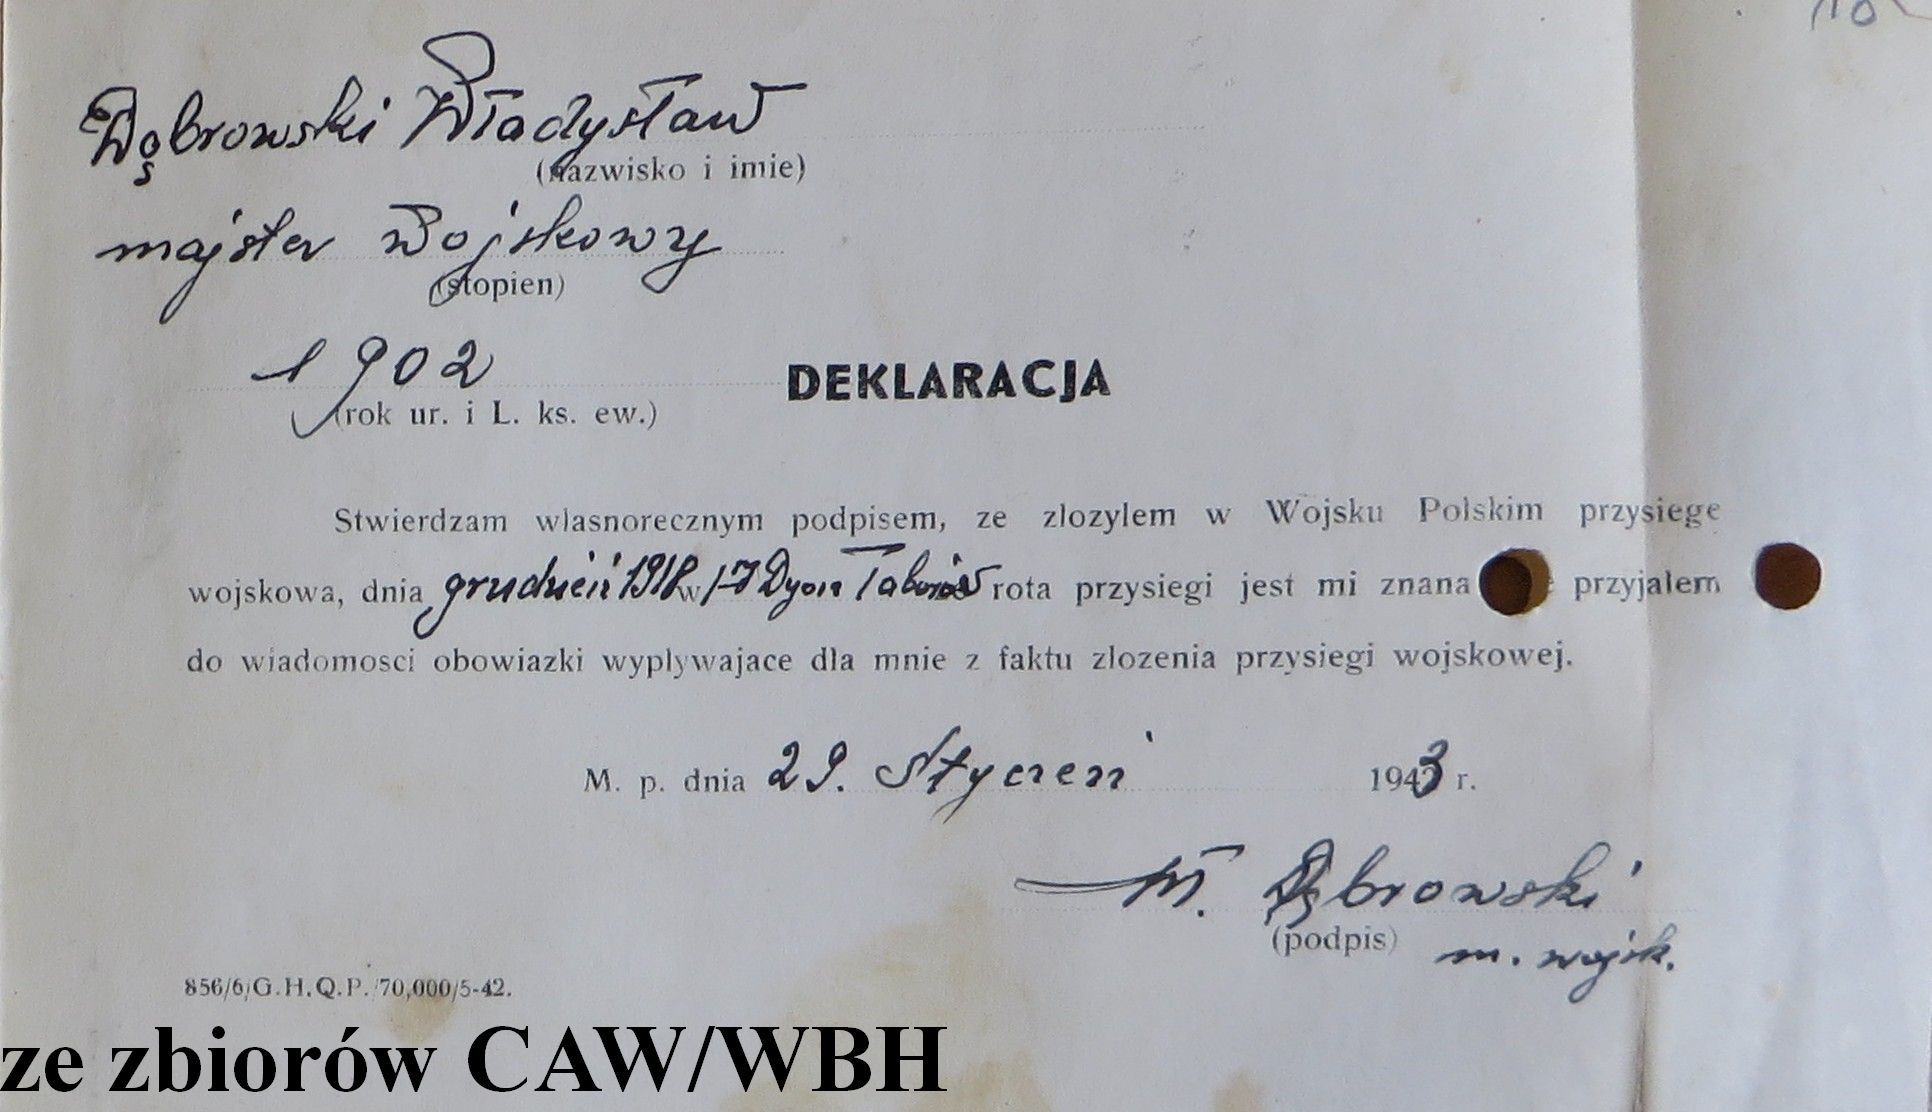 Dąbrowski Władysław
(nazwisko i imie)
majster wojskowy
(stopien)
1902
(rok ur. i L. ks. ew.)
DEKLARACJA
Stwierdzam wlasnorecznym podpisem, ze zlozylem w Wojsku Polskim przysiege
wojskowa, dnia grudzień 1918 w 1-J Dyon Taborów rota przysiegi jest mi znana przyjalem
do wiadomosci obowiazki wyplywajace dla mnie z faktu zlozenia przysiegi wojskowej.
M. p. dnia 29. Styczeń 1943 r.
W. Dąbrowski
(podpis) m. wojsk.
856/6/G.H.Q.P./70,000/5-42.
ze zbiorów CAW/WBH